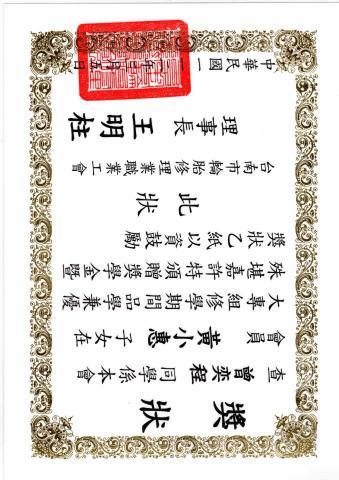 獎狀
查曾奕程同學係本會
會員黃小惠子女在
大專組修學期間品學兼優
殊堪嘉許特頒贈獎學金暨
獎狀乙紙以資鼓勵
此狀
台南市輪胎修理業職業工會
理事長 王明柱
中華民國一 年三月五日